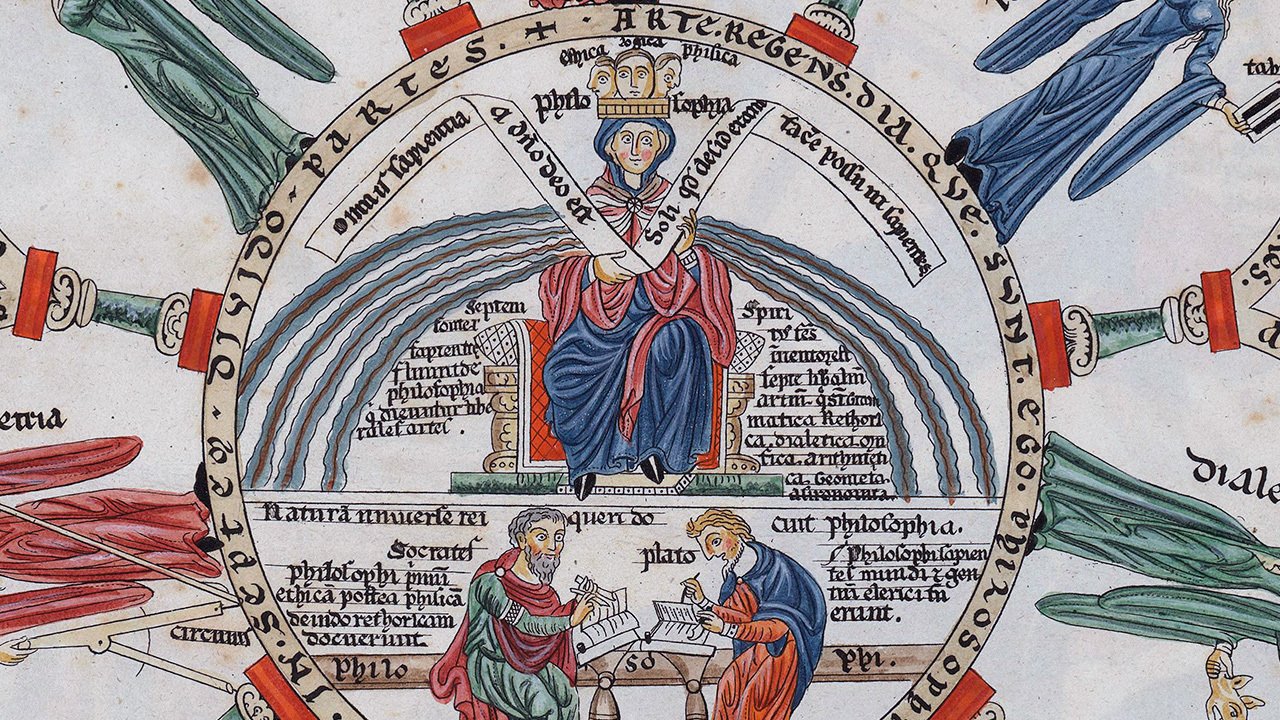 ARTE.REGENS.DIA.QVE.SVNT.EGO.
PHILOSOPH
DIVIDO PARTES. +
ethica logica phisica
Philo sophia
omnis sapientia
a dno deo est
Soli qd desiderant
facere possunt sapientes
Septem
fontes
sapientie
fluunt de
philosophia
q dicuntur libe
rales artes.
Spiri
tus scs
inventor est
septe liberaliu
artiu
matica Rethori
ca. dialetica
sica. arithmeti
ca. Geometa.
astronomia.
Natura universe rei queri do cuit Philosophia.
Socrates
philosophi primu
ethica postea phisica
deinde rethoricam
docuerunt
plato
Philosophi sapien
tes mundi & gen
tiu clerici fu
erunt.
Philo so phi.
circinus
etria
Diale